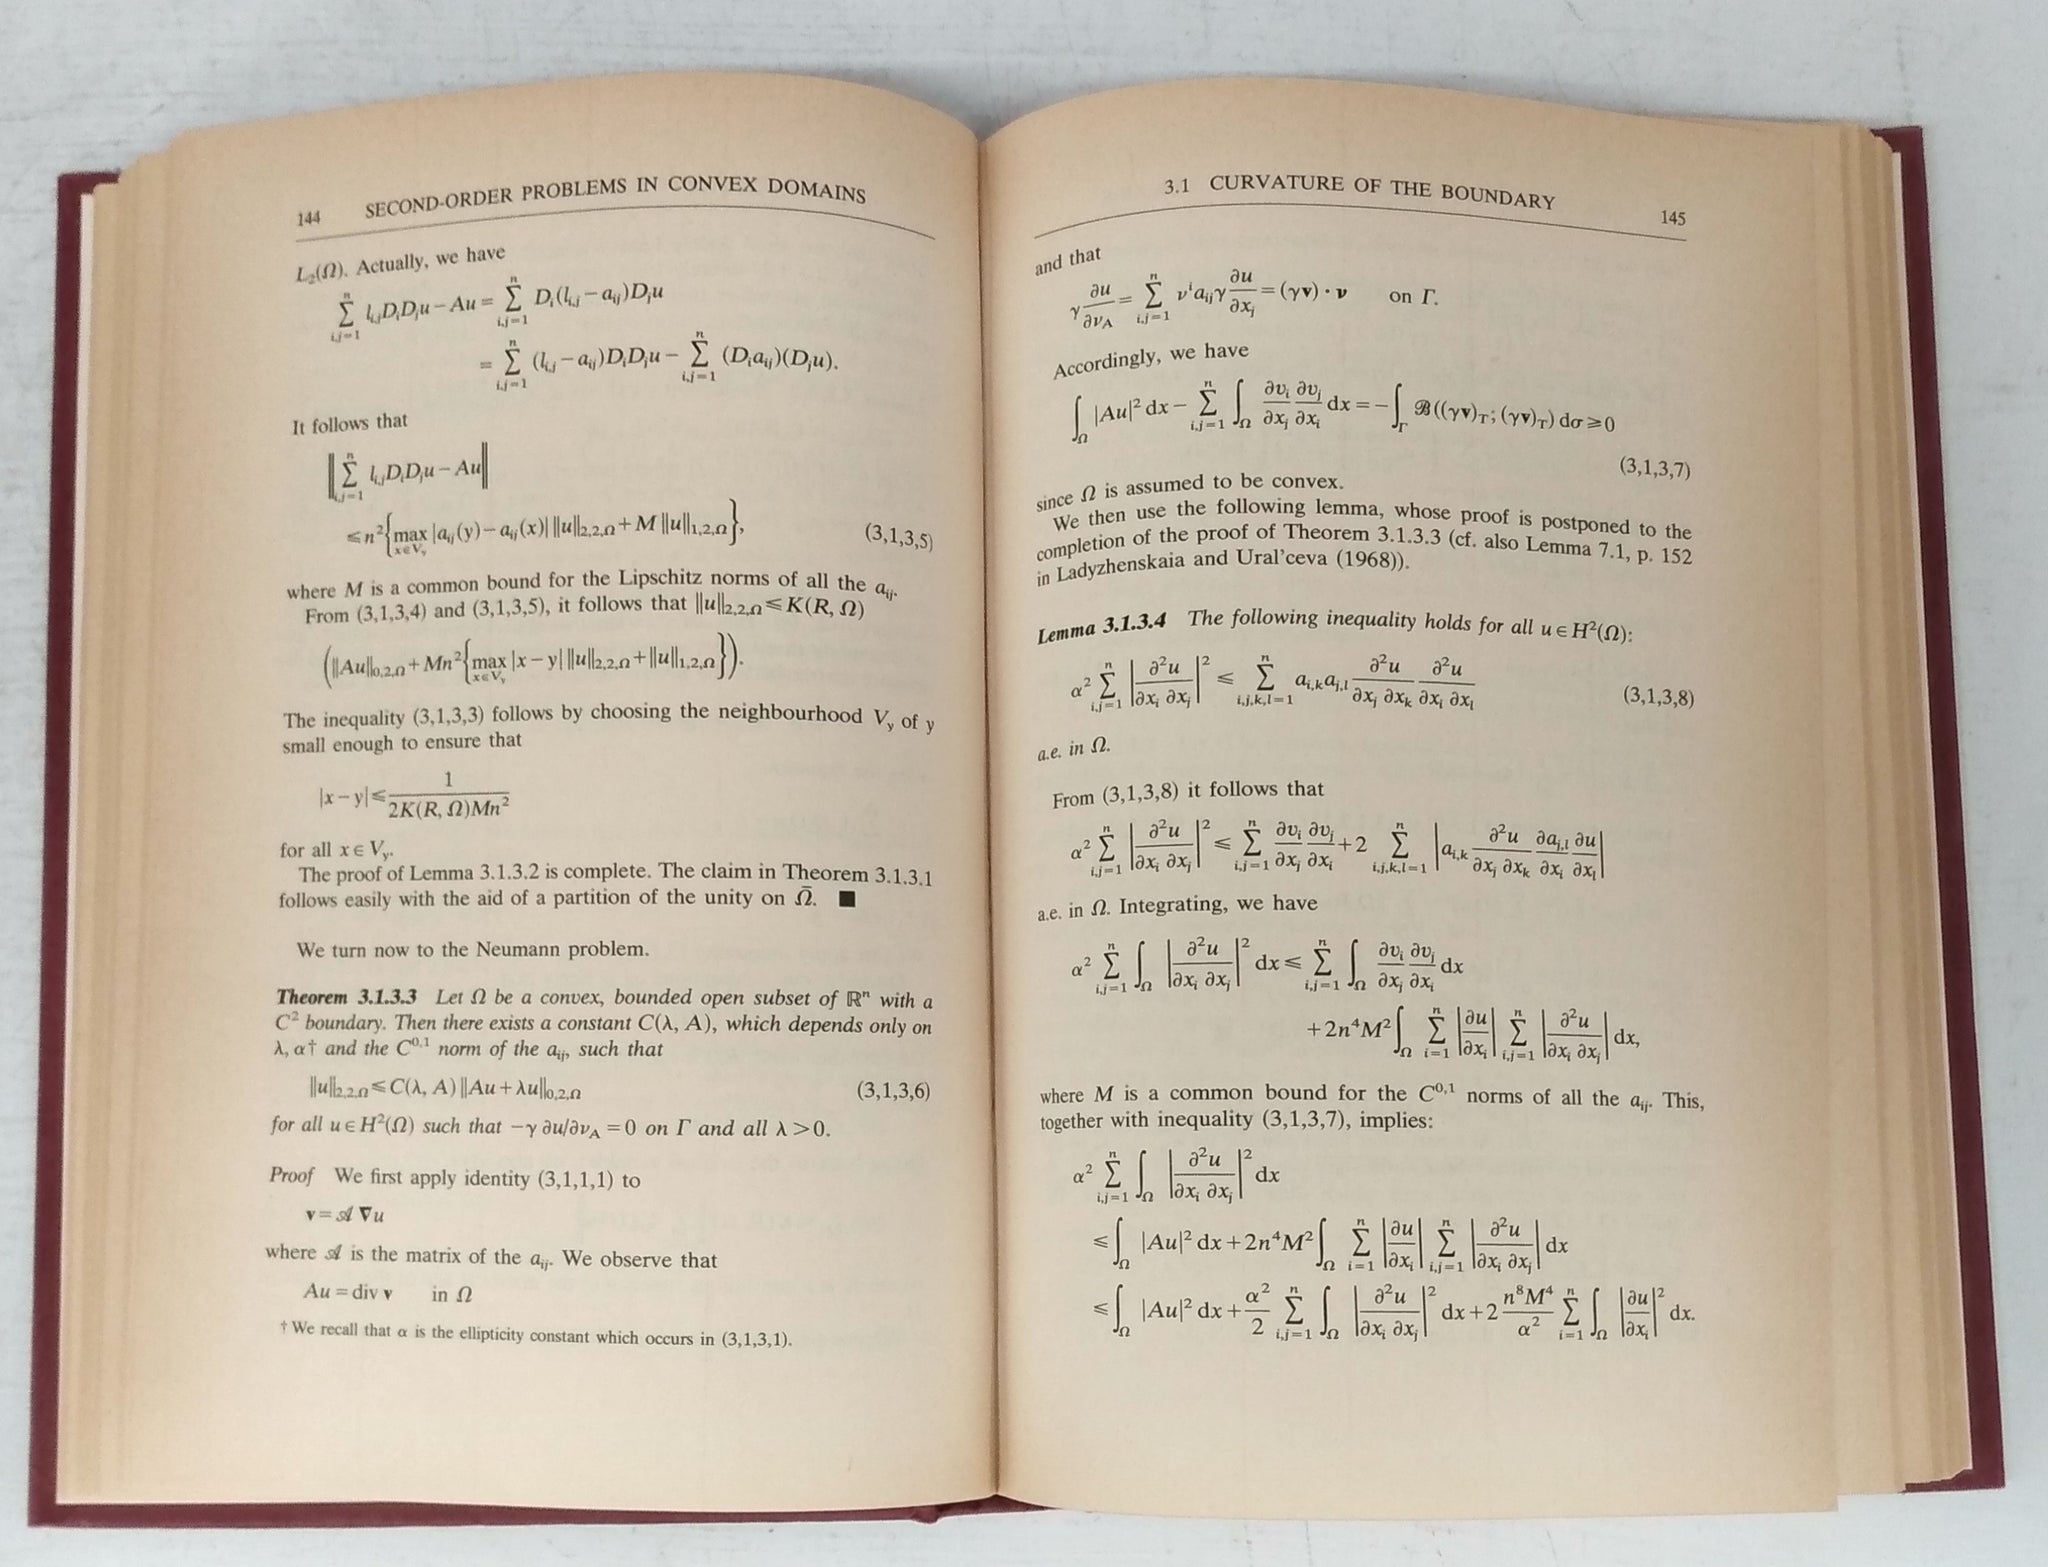 144 SECOND-ORDER PROBLEMS IN CONVEX DOMAINS
L₂(Ω). Actually, we have
∑_{i,j=1}^n l_{i,j}D_iD_ju − Au = ∑_{i,j=1}^n D_i(l_{i,j} − a_{ij})D_ju
= ∑_{i,j=1}^n (l_{i,j} − a_{ij})D_iD_ju − ∑_{i,j=1}^n (D_ia_{ij})(D_ju).
It follows that
‖∑_{i,j=1}^n l_{i,j}D_iD_ju − Au‖
≤ n²{max_{x∈V_y} |a_{ij}(y) − a_{ij}(x)| ‖u‖_{2,2,Ω} + M ‖u‖_{1,2,Ω}}, (3,1,3,5)
where M is a common bound for the Lipschitz norms of all the a_{ij}.
From (3,1,3,4) and (3,1,3,5), it follows that ‖u‖_{2,2,Ω} ≤ K(R, Ω)
(‖Au‖_{0,2,Ω} + Mn²{max_{x∈V_y} |x − y| ‖u‖_{2,2,Ω} + ‖u‖_{1,2,Ω}}).
The inequality (3,1,3,3) follows by choosing the neighbourhood V_y of y
small enough to ensure that
|x − y| ≤ 1/(2K(R, Ω)Mn²)
for all x ∈ V_y.
The proof of Lemma 3.1.3.2 is complete. The claim in Theorem 3.1.3.1
follows easily with the aid of a partition of the unity on Ω̄. ■
We turn now to the Neumann problem.
Theorem 3.1.3.3 Let Ω be a convex, bounded open subset of ℝⁿ with a
C² boundary. Then there exists a constant C(λ, A), which depends only on
λ, α† and the C^{0,1} norm of the a_{ij}, such that
‖u‖_{2,2,Ω} ≤ C(λ, A) ‖Au + λu‖_{0,2,Ω} (3,1,3,6)
for all u ∈ H²(Ω) such that −γ ∂u/∂ν_A = 0 on Γ and all λ > 0.
Proof We first apply identity (3,1,1,1) to
v = 𝒜 ∇u
where 𝒜 is the matrix of the a_{ij}. We observe that
Au = div v in Ω
† We recall that α is the ellipticity constant which occurs in (3,1,3,1).
3.1 CURVATURE OF THE BOUNDARY 145
and that
γ ∂u/∂ν_A = ∑_{i,j=1}^n ν^i a_{ij}γ ∂u/∂x_j = (γv) · ν on Γ.
Accordingly, we have
∫_Ω |Au|² dx − ∑_{i,j=1}^n ∫_Ω ∂v_i/∂x_j ∂v_j/∂x_i dx = −∫_Γ ℬ((γv)_T; (γv)_T) dσ ≥ 0
(3,1,3,7)
since Ω is assumed to be convex.
We then use the following lemma, whose proof is postponed to the
completion of the proof of Theorem 3.1.3.3 (cf. also Lemma 7.1, p. 152
in Ladyzhenskaia and Ural'ceva (1968)).
Lemma 3.1.3.4 The following inequality holds for all u ∈ H²(Ω):
α² ∑_{i,j=1}^n |∂²u/∂x_i ∂x_j|² ≤ ∑_{i,j,k,l=1}^n a_{i,k}a_{j,l} ∂²u/∂x_j ∂x_k ∂²u/∂x_i ∂x_l (3,1,3,8)
a.e. in Ω.
From (3,1,3,8) it follows that
α² ∑_{i,j=1}^n |∂²u/∂x_i ∂x_j|² ≤ ∑_{i,j=1}^n ∂v_i/∂x_j ∂v_j/∂x_i + 2 ∑_{i,j,k,l=1}^n |a_{i,k} ∂²u/∂x_j ∂x_k ∂a_{j,l}/∂x_i ∂u/∂x_l|
a.e. in Ω. Integrating, we have
α² ∑_{i,j=1}^n ∫_Ω |∂²u/∂x_i ∂x_j|² dx ≤ ∑_{i,j=1}^n ∫_Ω ∂v_i/∂x_j ∂v_j/∂x_i dx
+ 2n⁴M² ∫_Ω ∑_{i=1}^n |∂u/∂x_i| ∑_{i,j=1}^n |∂²u/∂x_i ∂x_j| dx,
where M is a common bound for the C^{0,1} norms of all the a_{ij}. This,
together with inequality (3,1,3,7), implies:
α² ∑_{i,j=1}^n ∫_Ω |∂²u/∂x_i ∂x_j|² dx
≤ ∫_Ω |Au|² dx + 2n⁴M² ∫_Ω ∑_{i=1}^n |∂u/∂x_i| ∑_{i,j=1}^n |∂²u/∂x_i ∂x_j| dx
≤ ∫_Ω |Au|² dx + α²/2 ∑_{i,j=1}^n ∫_Ω |∂²u/∂x_i ∂x_j|² dx + 2 n⁸M⁴/α² ∑_{i=1}^n ∫_Ω |∂u/∂x_i|² dx.